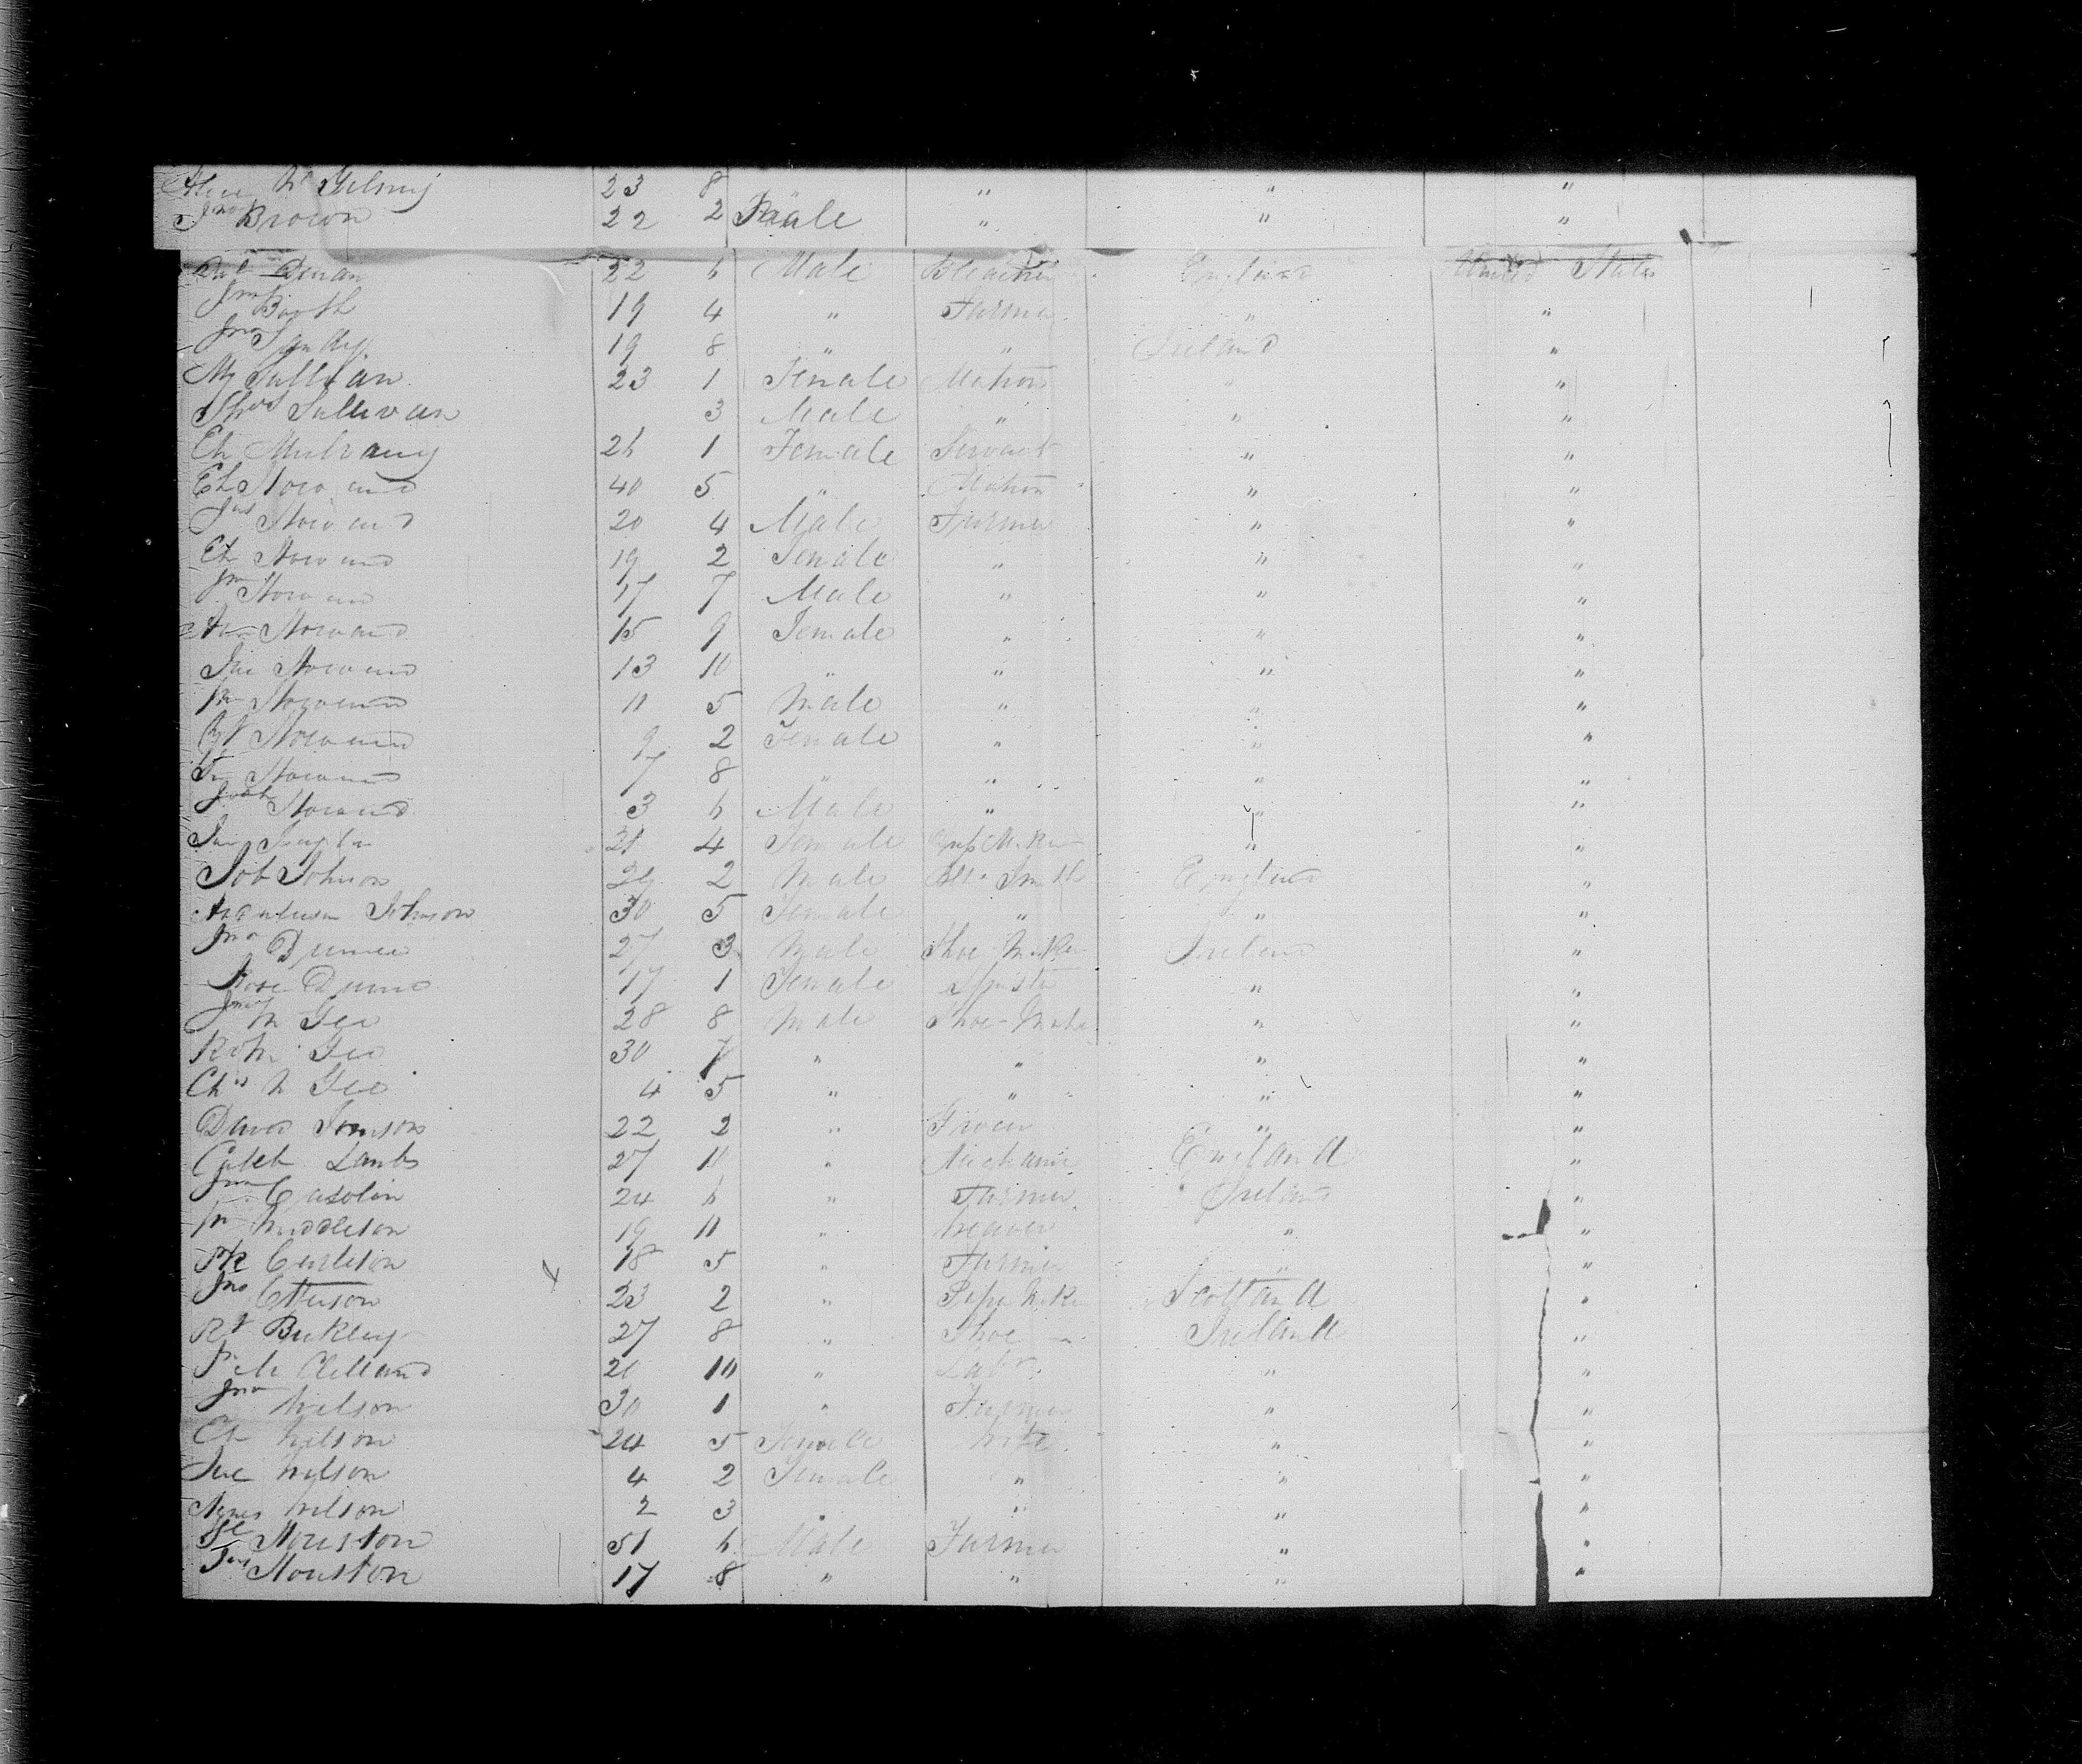 Mc Gilsnij 23 8 " " "
Jno Brown 22 2 Male " " "
Danl Dinan 22 6 Male Bleacher England United States
Jno Booth 19 4 " Farmer " "
Jno 19 8 " " Ireland "
My Sullivan 23 1 Female Matron " "
Thos Sullivan 3 Male " " "
Eh Mulvany 26 1 Female Servant " "
Eh Howard 40 5 " Matron " "
Jas Howard 20 4 Male Farmer " "
Eh Howard 19 2 Female " " "
Jno Howard 17 7 Male " " "
Ann Howard 15 9 Female " " "
Jane Howard 13 10 " " " "
Wm Howard 11 5 Male " " "
Howard 9 2 Female " " "
Howard 7 8 " " " "
Howard 3 6 Male " " "
21 4 Female Cap Maker " "
Job Johnson 29 2 Male Blk Smith England "
Johnson 30 5 Female " " "
Jno Dunne 27 3 Male Shoe Maker Ireland "
Rose Dunne 17 1 Female Spinster " "
Jno Mc Gee 28 8 Male Shoe-Maker " "
Robt Gee 30 7 " " " "
Chs Mc Gee 4 5 " " " "
David Jomson 22 2 " Grocer " "
Caleb Lamb 27 11 " Mechanic England "
Jno Casolin 24 6 " Farmer Ireland "
Wm Middleton 19 11 " Weaver " "
Pk Carleton 18 5 " Farmer " "
Jno Etterson 23 2 " Paper Maker Scotland "
Rt Buckley 27 8 " Shoe " Ireland "
Mc Clelland 20 10 " Labr " "
Jno Wilson 30 1 " Farmer " "
Eh Wilson 24 5 Female Wife " "
Jane Wilson 4 2 Female " " "
Agnes Wilson 2 3 " " " "
Houston 51 6 Male Farmer " "
Jas Houston 17 8 " " " "